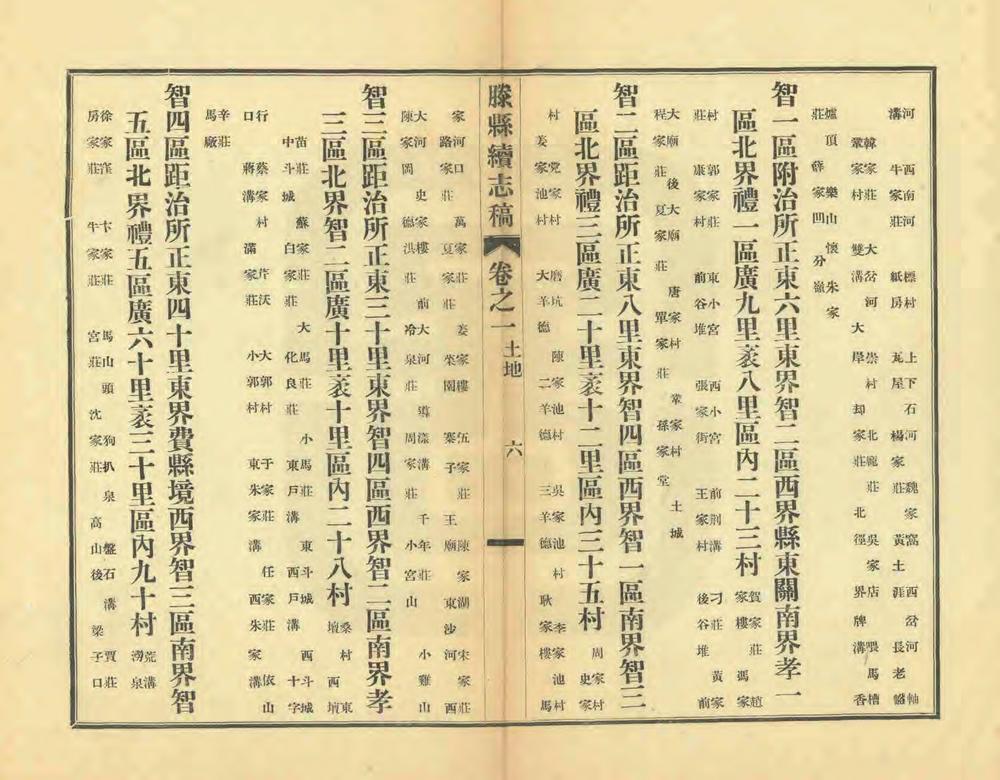 河 西南河 標村 上下石河 魏家窩 西岔河 軸
溝 牛家莊 紙房 瓦屋 楊家莊 黃土涯 長老
韓家莊 大岔河 崇村 北龐莊 吳家店 喂馬槽
鞏家村 雙溝 大旱 却家莊 北徑 界牌溝 香
爐頂 樂山 懷 朱家
莊 薛家凹 分嶺
智一區附治所正東六里東界智二區西界縣東關南界孝一
區北界禮一區廣九里袤八里區內二十三村 賀家莊 趙
家樓 馮家
村 郭家莊 東小宮 西小宮 前荆溝 刁莊 黃家
莊 康家村 前谷堆 張家街 王家村 後谷堆 前
大廟 後大廟 唐家村 鞏家村 土城
程家莊 夏家莊 單家莊 孫家堂
智二區距治所正東八里東界智四區西界智一區南界智三
區北界禮三區廣二十里袤十二里區內三十五村 周家村
史家
村 党家村 磨坑 陳家池村 吳家池村 李家池村
姜家池村 大羊德 二羊德 三羊德 耿家樓 馬
滕縣續志稿 卷之一 土地 六
家河口 萬家莊 姜家樓 伍家莊 陳家湖 宋家莊
路家莊 夏家莊 菜園 寨子 王廟 東沙河 西
大河 史家樓 前大河 導溝 千年莊 小雞山
陳家岡 德洪莊 冷泉莊 周家莊 小宮山
智三區距治所正東三十里東界智四區西界智二區南界孝
三區北界智二區廣十里袤十里區內二十八村 桑村 東
壇 西壇
苗莊 蘇家莊 大馬莊 小馬莊 東斗城 西斗城
中斗城 白家莊 化良莊 東戶溝 西戶溝 十字
行 蔡家村 芹沃 大郭村 于家莊 任家莊 依山
口 蔣溝 滿家莊 小郭村 東朱家溝 西朱家溝
辛莊
馬廠
智四區距治所正東四十里東界費縣境西界智三區南界智
五區北界禮五區廣六十里袤三十里區內九十村 荒溝
澇泉
徐家窪 卞家莊 馬山頭 狗扒泉 盤石溝 賈莊
房家莊 牛家莊 宮莊 沈家莊 高山後 梁子口